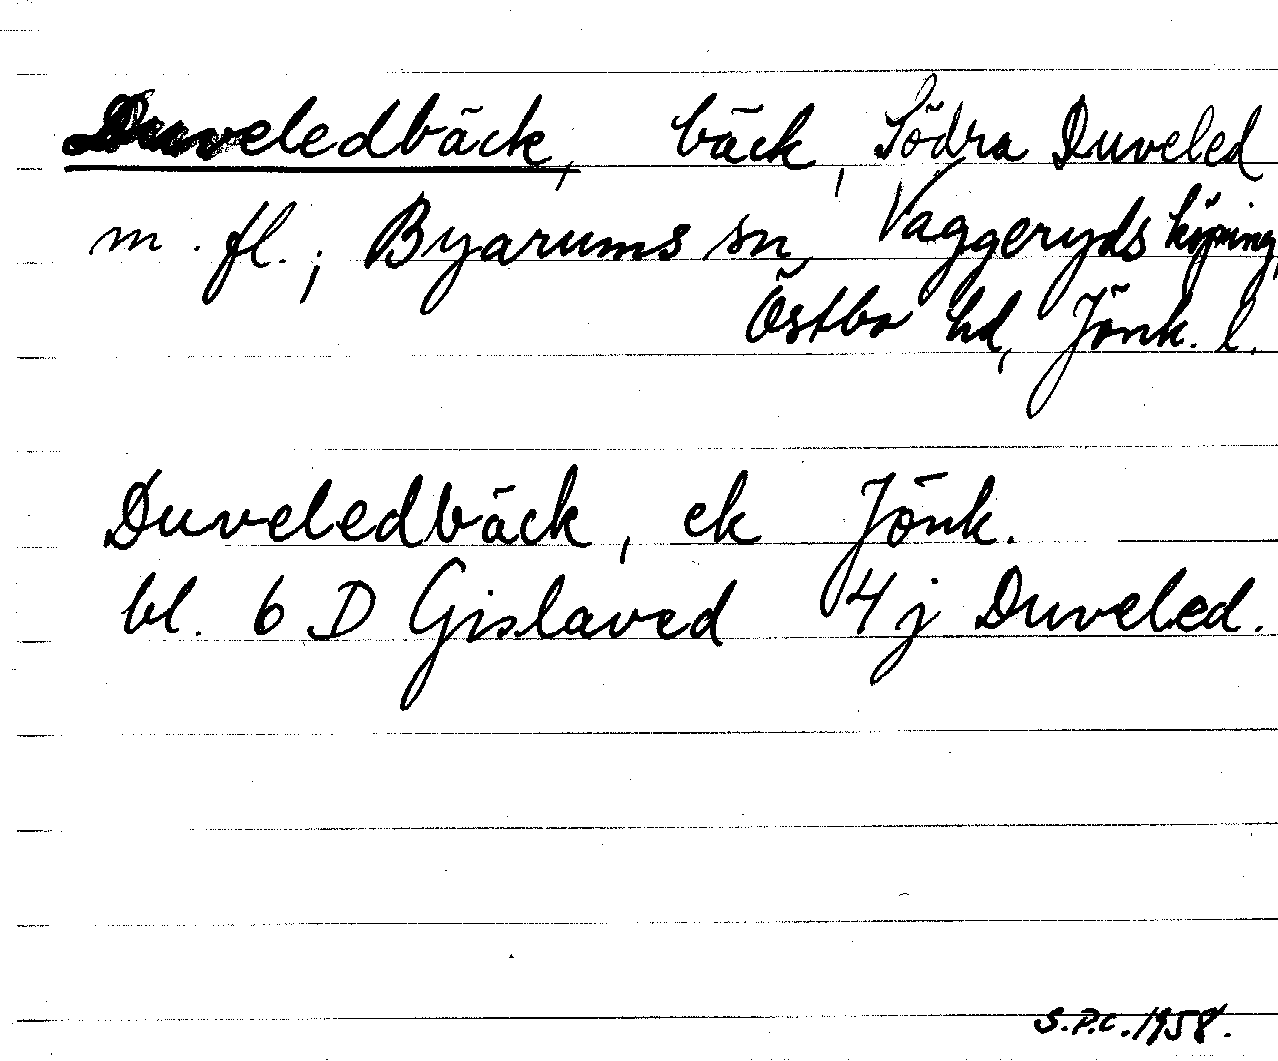 Duveledbäck, bäck, Södra Duveled
m. fl.; Byarums sn, Vaggeryds köping,
Östbo hd, Jönk. l.
Duveledbäck, ek Jönk.
bl. 6 D Gislaved 4 j Duveled.
S.P.C. 1958.